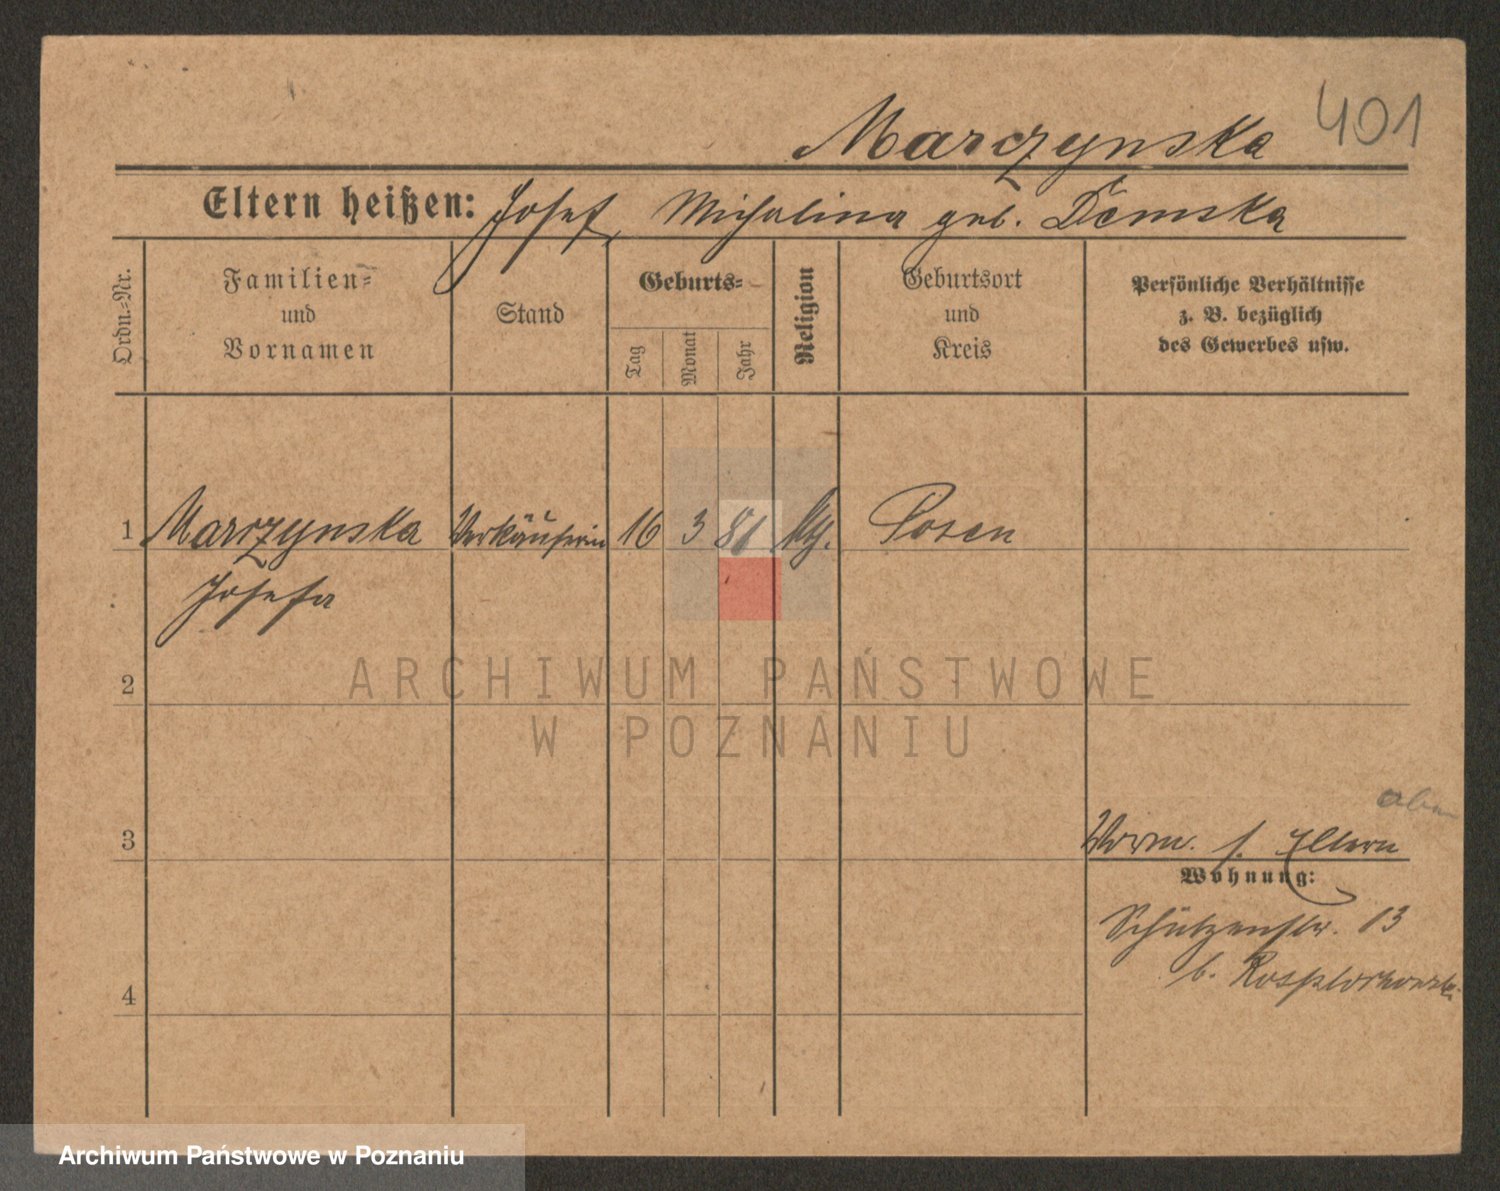 Marczynska 401
Eltern heißen: Josef, Michalina geb. Demska
Ordn.-Nr.
Familien-
und
Vornamen
Stand
Geburts-
Tag
Monat
Jahr
Religion
Geburtsort
und
Kreis
Persönliche Verhältnisse
z. B. bezüglich
des Gewerbes usw.
1 Marczynska Verkäuferin 16 3 81 Posen
Josefa
2
ARCHIWUM PAŃSTWOWE
W POZNANIU
3
Vorm. s. Eltern
Wohnung:
Schützenstr. 13
b.
4
Archiwum Państwowe w Poznaniu